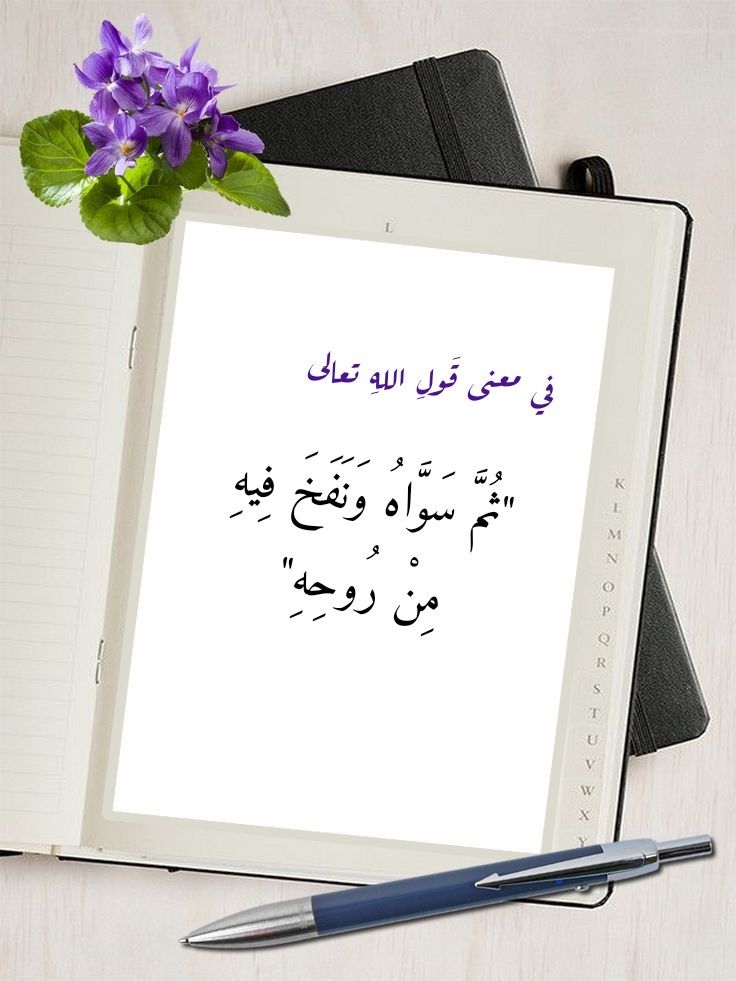 L
في معنى قَولِ اللهِ تعالى
"ثُمَّ سَوَّاهُ وَنَفَخَ فِيهِ
مِنْ رُوحِهِ"
K
L
M
N
O
P
Q
R
S
T
U
V
W
X
Y